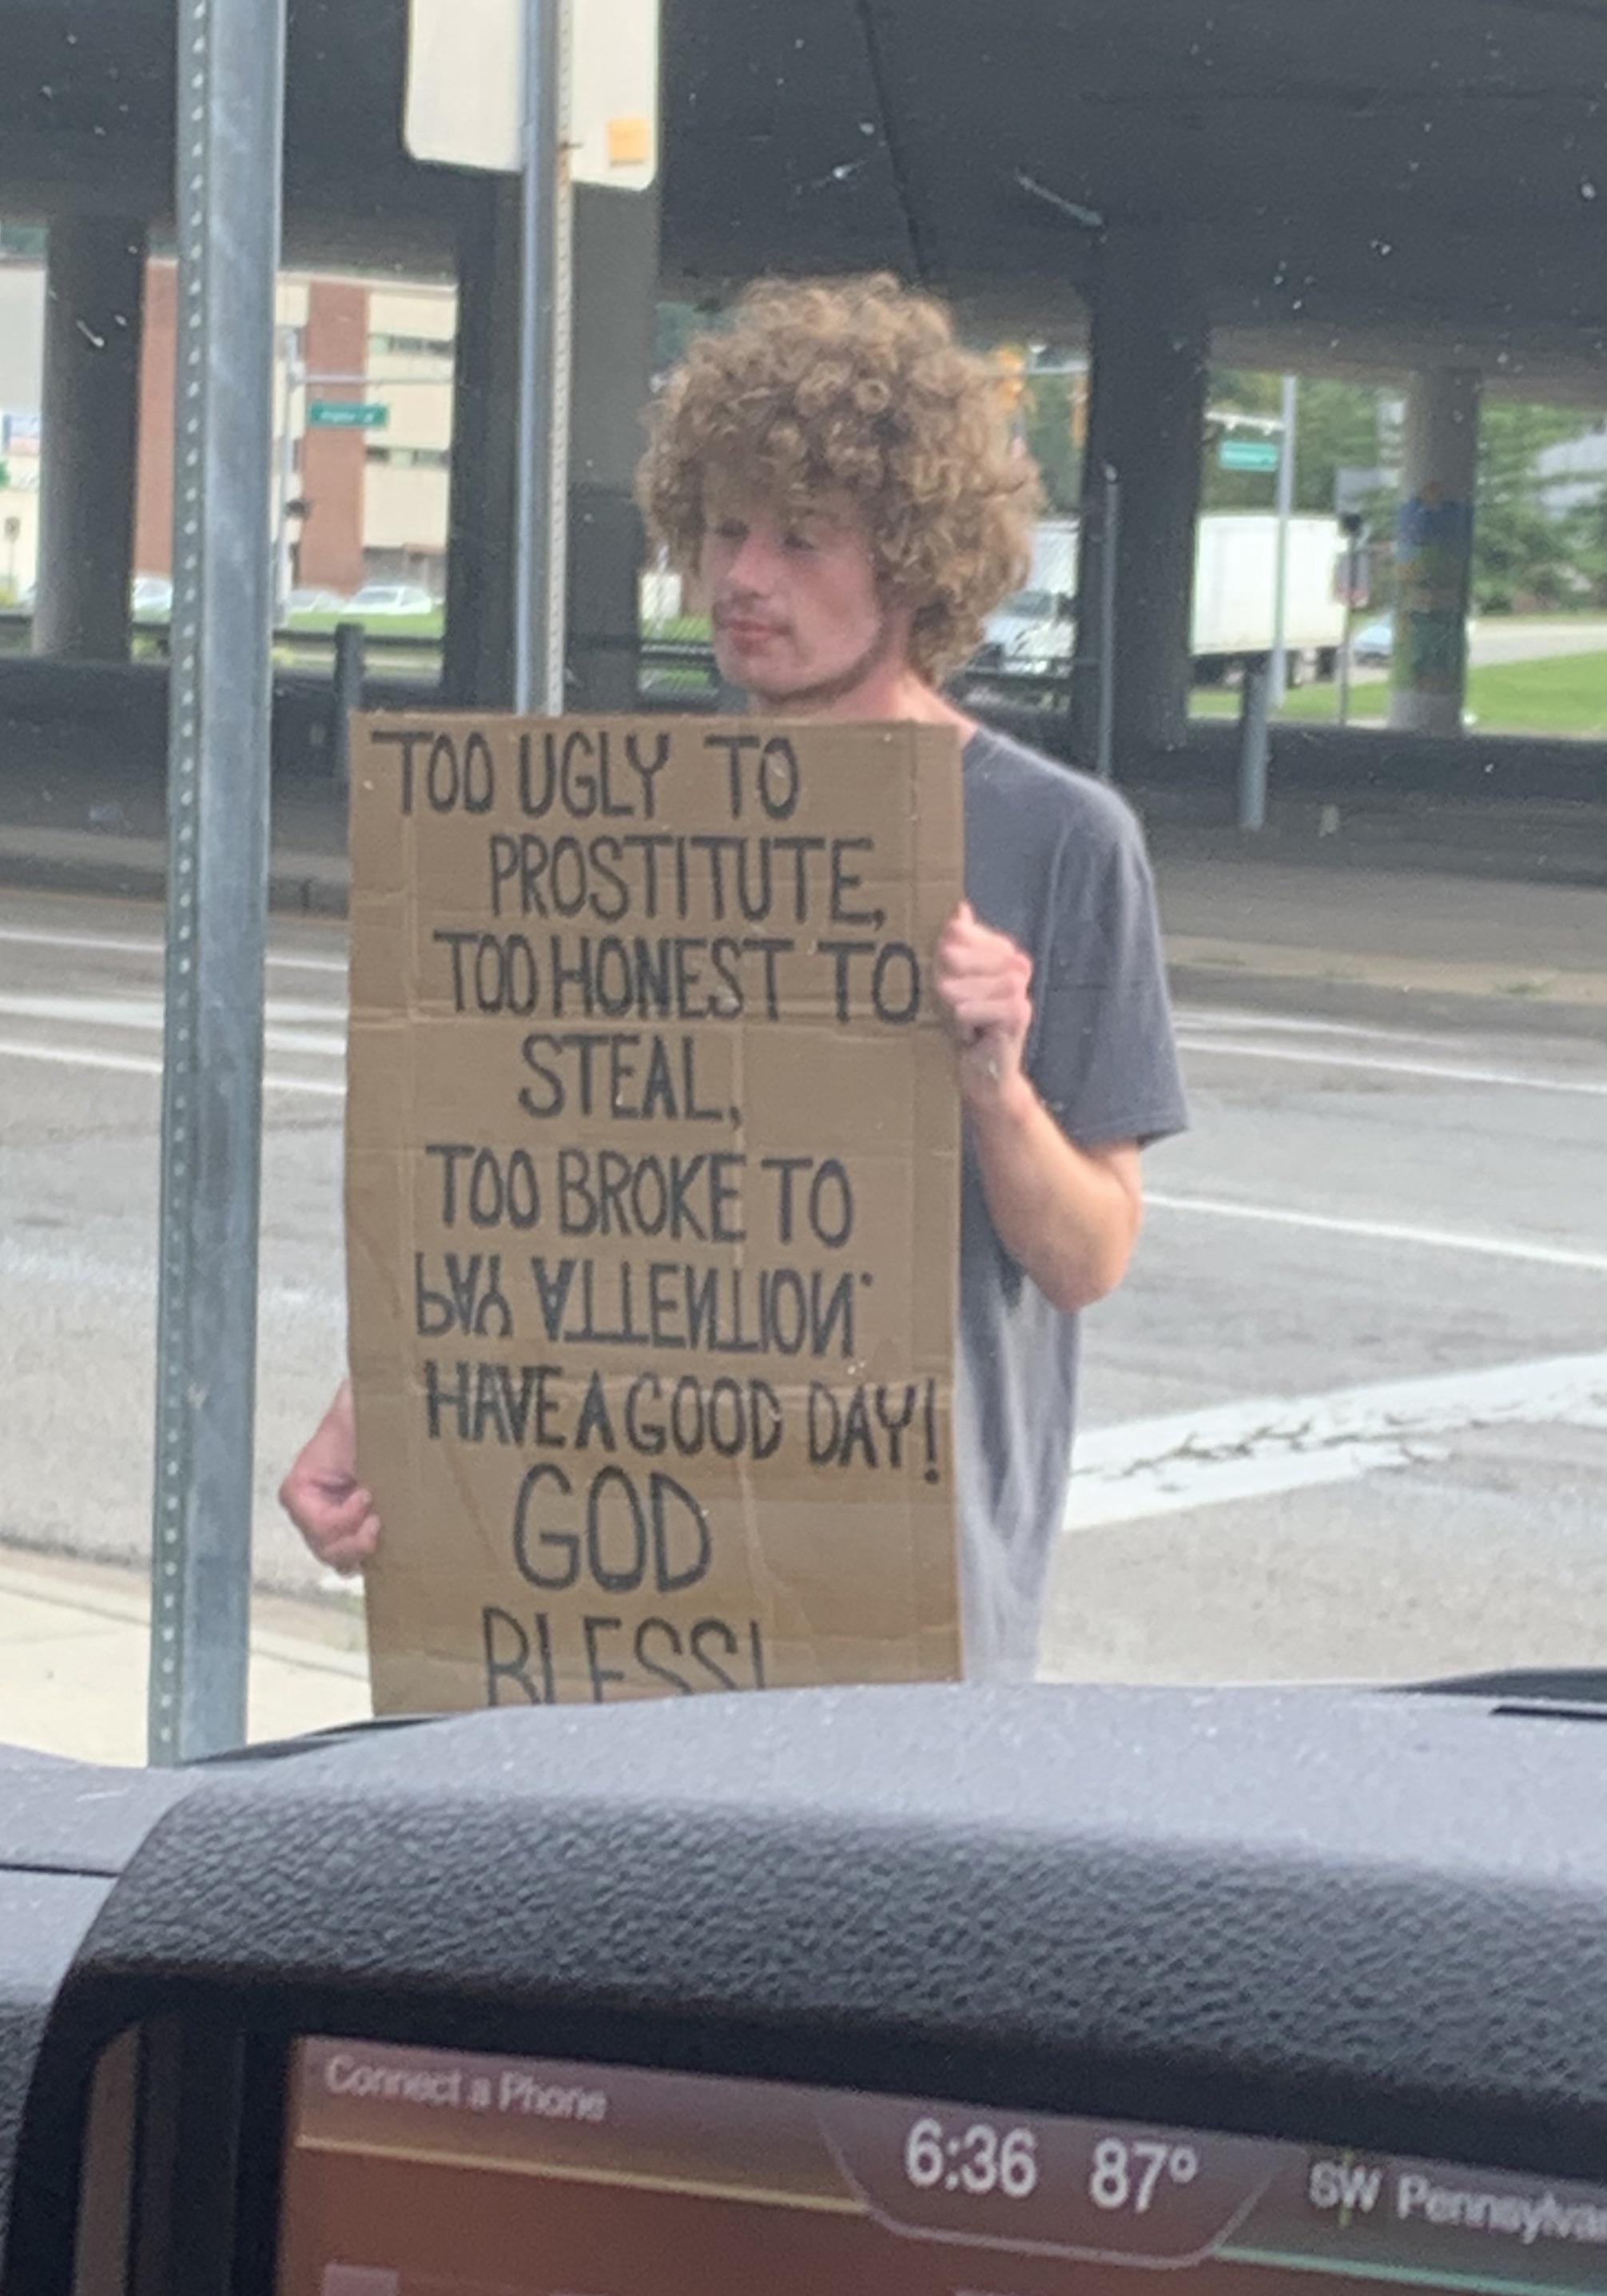 TOO UGLY TO
PROSTITUTE,
TOO HONEST TO
STEAL,
TOO BROKE TO
PAY ATTENTION.
HAVE A GOOD DAY!
GOD
BLESS!
Connect a Phone
6:36 87°
SW Pennsylva